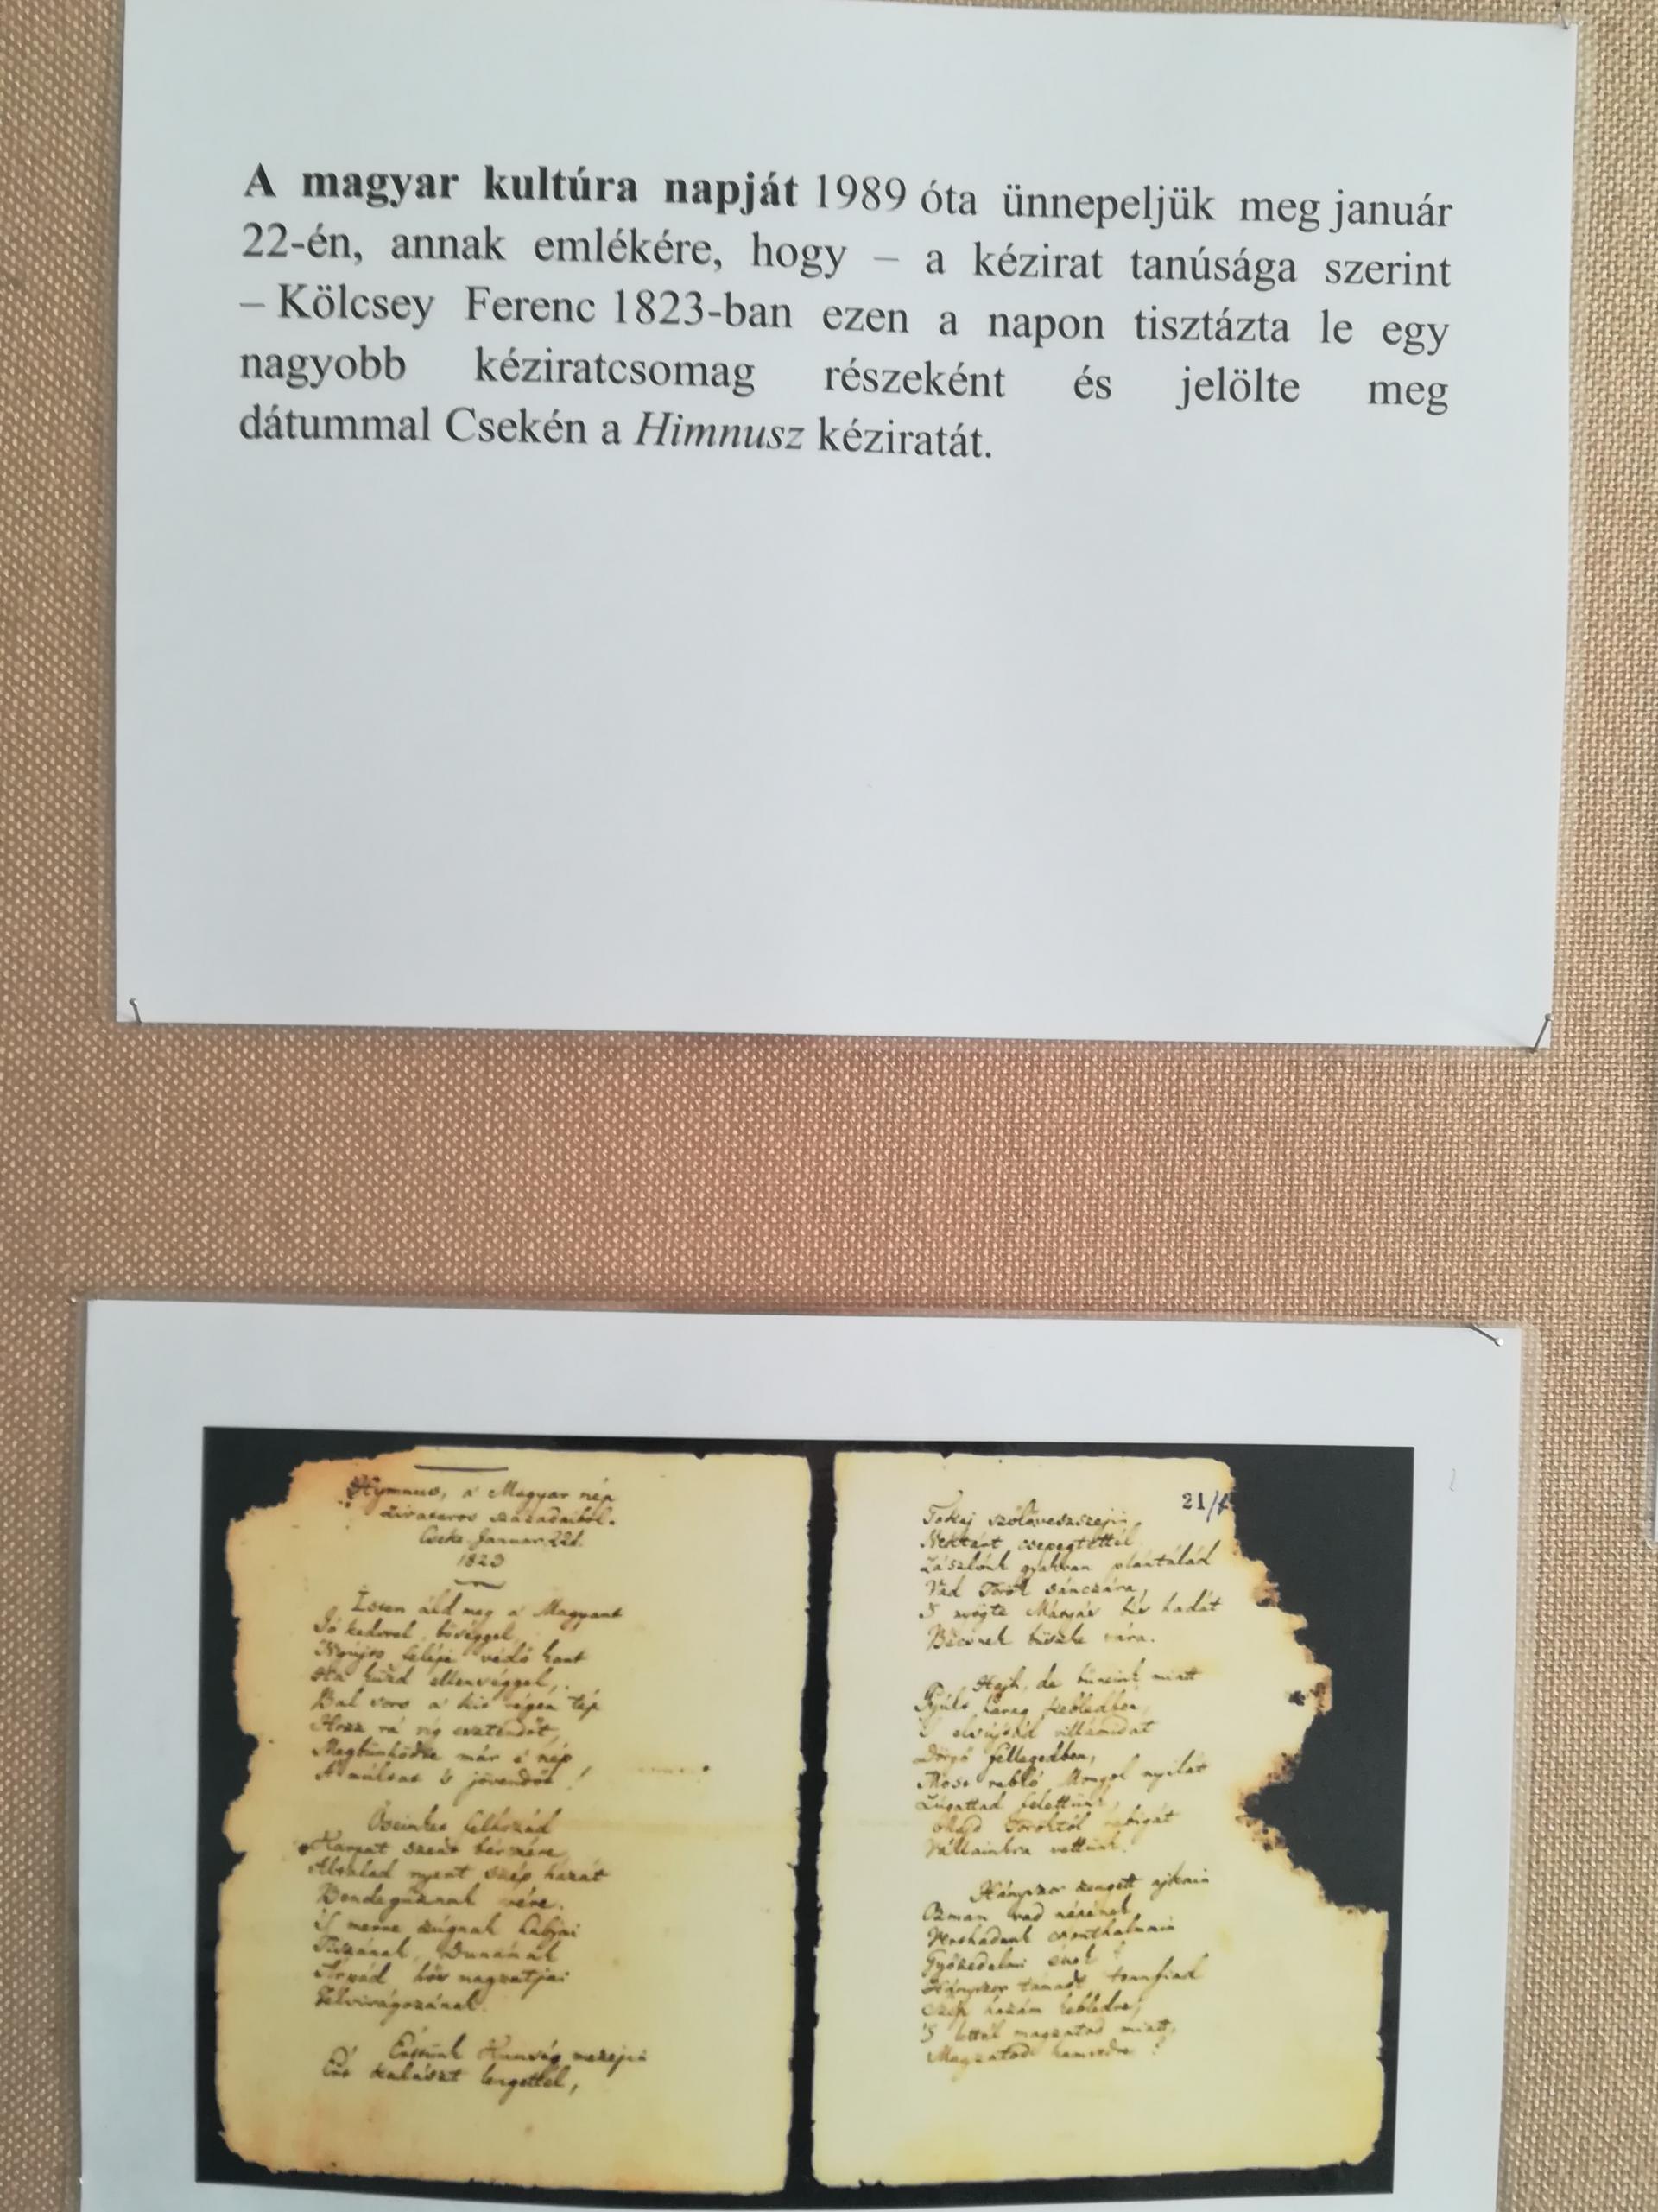 A magyar kultúra napját 1989 óta ünnepeljük meg január
22-én, annak emlékére, hogy – a kézirat tanúsága szerint
– Kölcsey Ferenc 1823-ban ezen a napon tisztázta le egy
nagyobb kéziratcsomag részeként és jelölte meg
dátummal Csekén a Himnusz kéziratát.
Hymnus, a' Magyar nép
zivataros századaiból.
Cseke Januar. 22d.
1823
Isten áld meg a' Magyart
Jó kedvvel, bőséggel,
Nyújts feléje védő kart
Ha küzd ellenséggel,
Bal sors a' kit régen tép
Hozz rá víg esztendőt,
Megbűnhődte már e' nép
A' múltat 's jövendőt!
Őseinket felhozád
Kárpát szent bérczére,
Általad nyert szép hazát
Bendegúznak vére.
'S merre zúgnak habjai
Tiszának, Dunának
Árpád hős magzatjai
Felvirágozának.
Értünk Kunság mezejin
Ért kalászt lengettél,
21/
Tokaj szőlővesszejin
Nektárt csepegtettél.
Zászlónk gyakran plántálád
Vad Török sánczára,
'S nyögte Mátyás bús hadát
Bécsnek büszke vára.
Hajh, de bűneink miatt
Gyúlt harag kebledben,
'S elsújtád villámidat
Dörgő fellegedben,
Most rabló Mongol nyilát
Zúgattad felettünk,
Majd Töröktől rabigát
Vállainkra vettünk.
Hányszor zengett ajkain
Ozman vad népének
Vert hadunk csonthalmain
Győzedelmi ének!
Hányszor támadt tennfiad
Szép hazám kebledre,
'S lettél magzatod miatt
Magzatod hamvvedre!